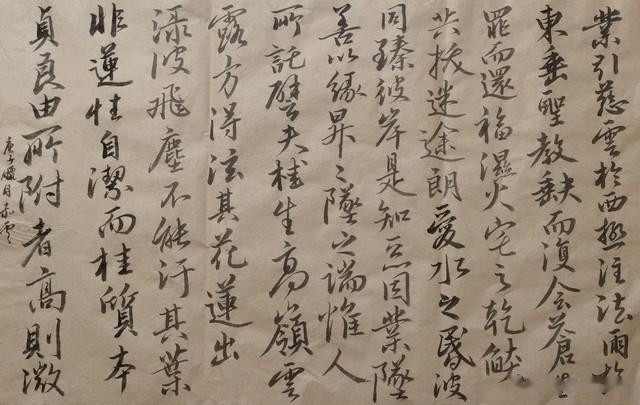 業引慈雲於西極注法雨於
東垂聖教缺而復全蒼生
罪而還福濕火宅之乾燄
共拔迷途朗愛水之昏波
同臻彼岸是知惡因業墜
善以緣昇々墜之端惟人
所託譬夫桂生高嶺雲
露方得泫其花蓮出
淥波飛塵不能汙其葉
非蓮性自潔而桂質本
貞良由所附者高則微
庚子臘月